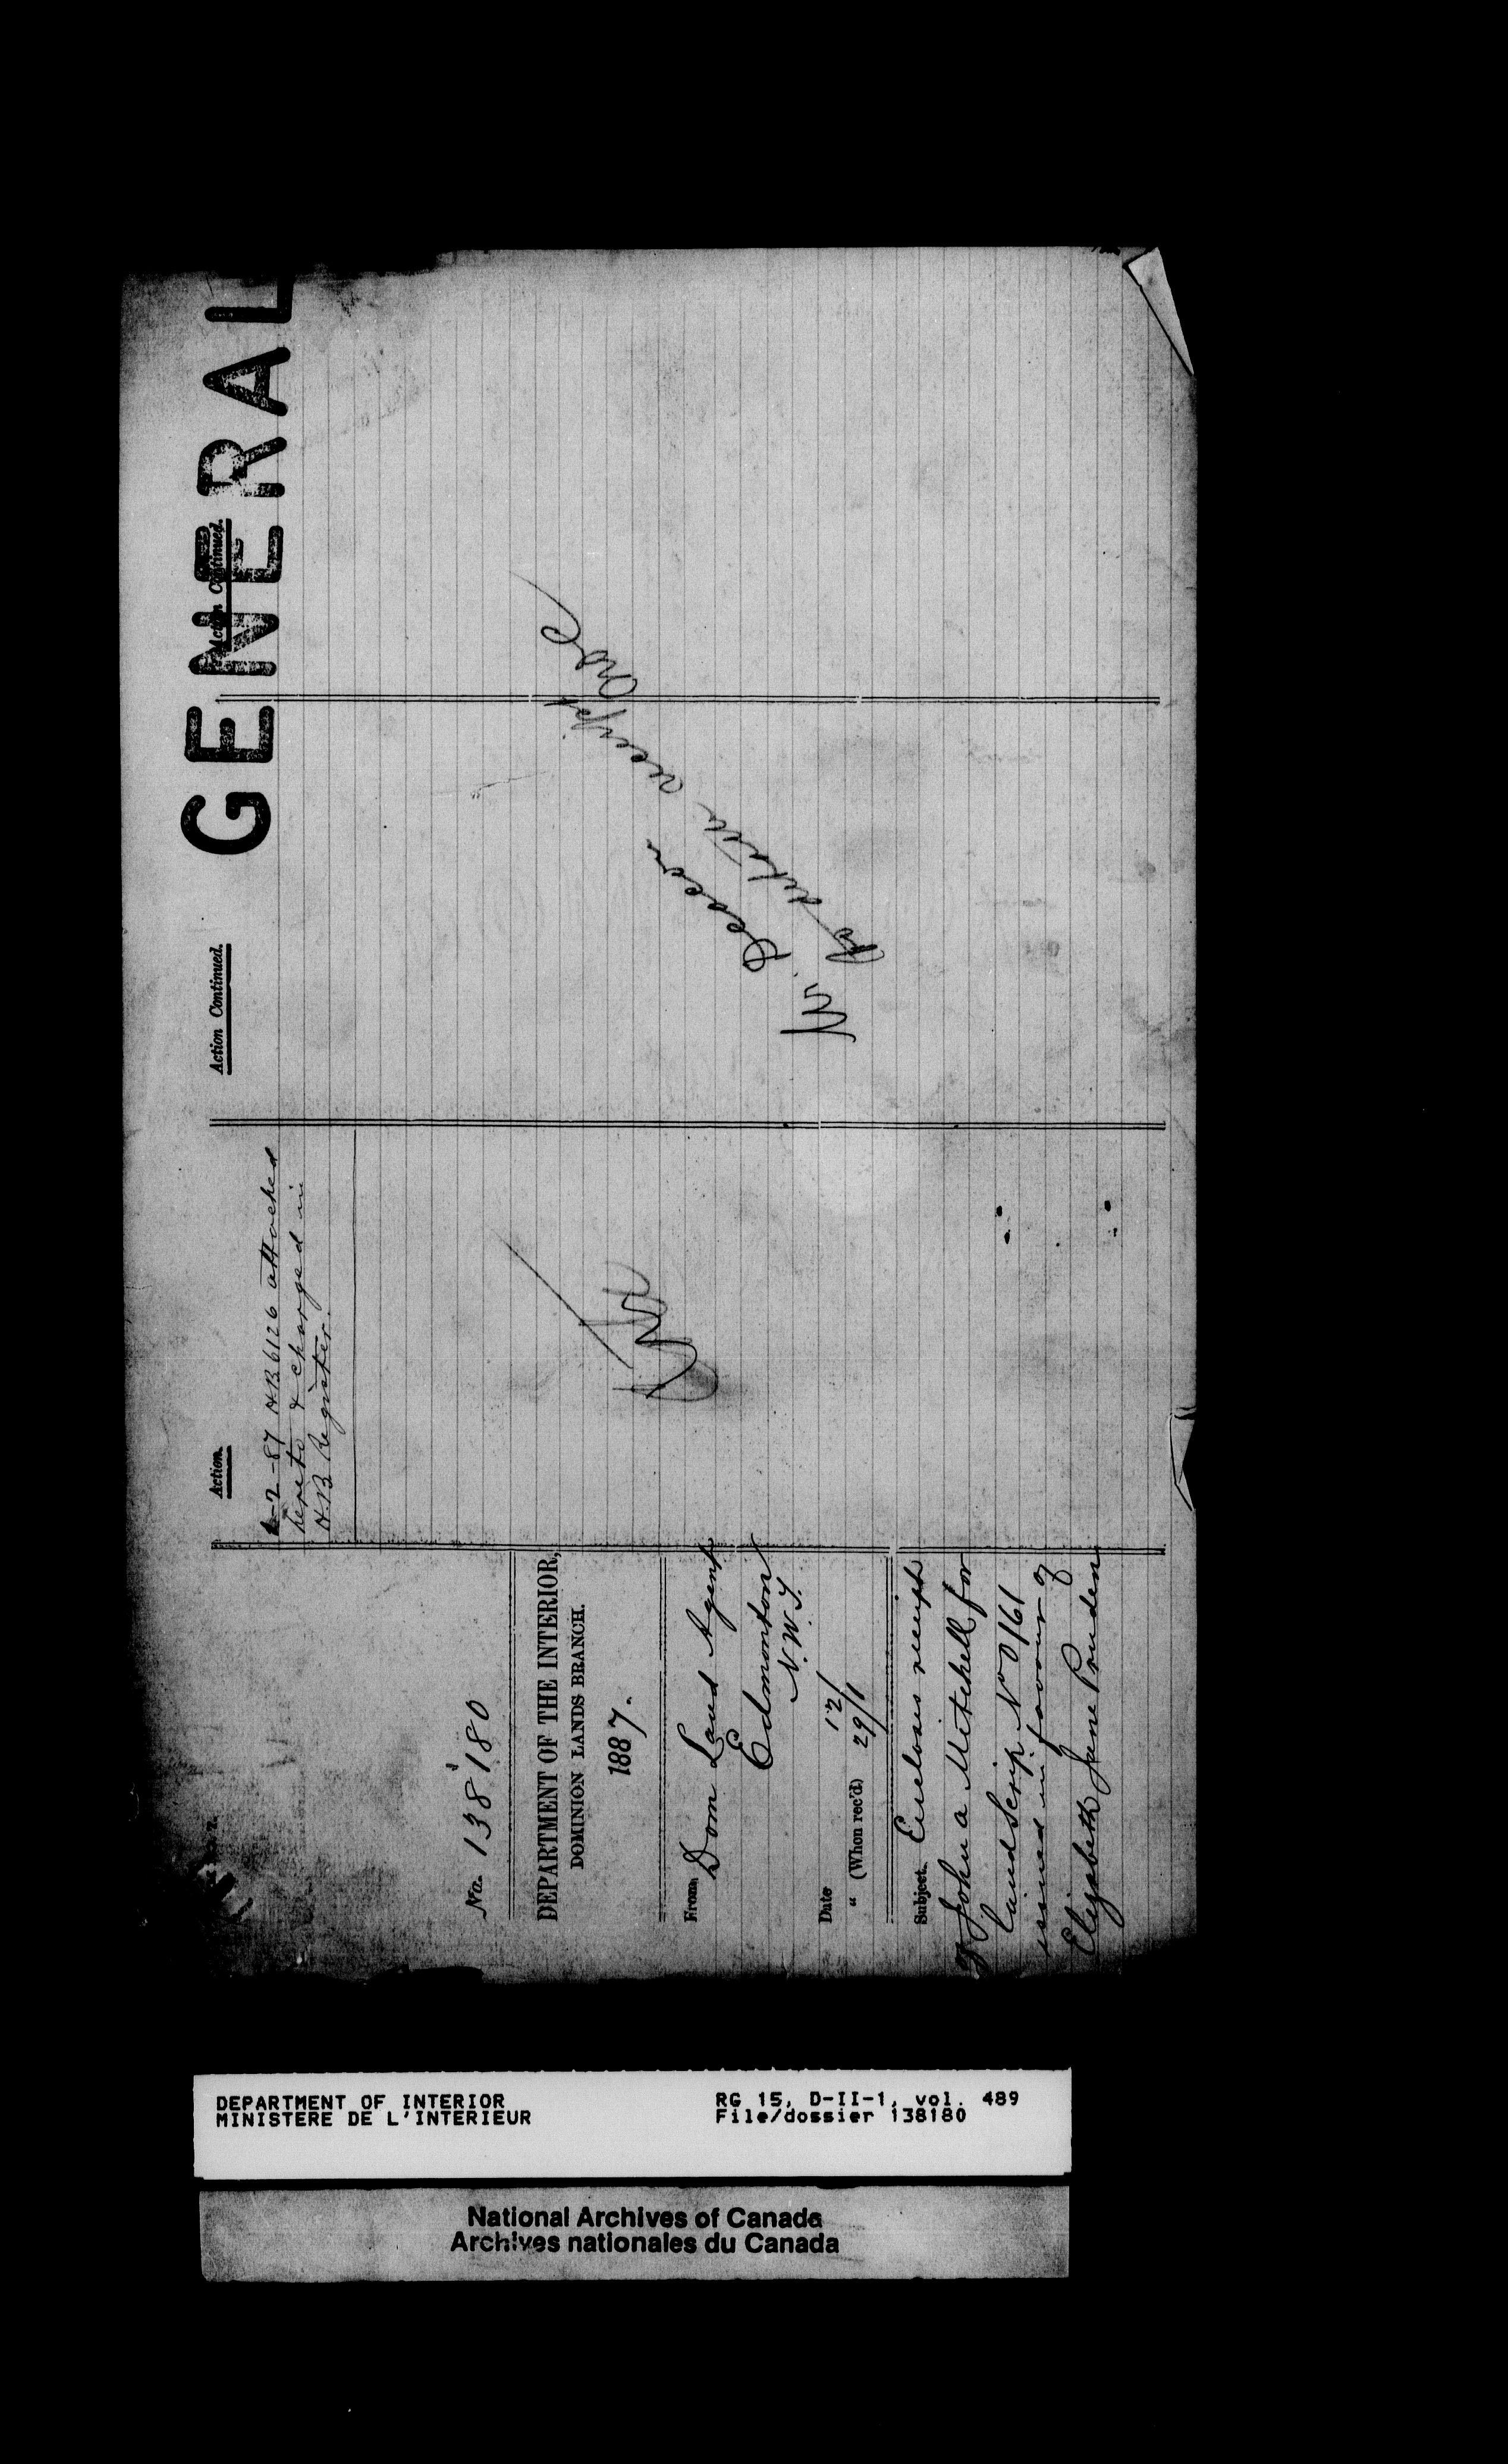 GENERAL
No. 138180
DEPARTMENT OF THE INTERIOR,
DOMINION LANDS BRANCH.
1887.
From Dom Land Agent
Edmonton
N.W.T.
Date 12/
" (When rec'd) 29/1
Subject. Encloses receipt
of John a Mitchell for
land Scrip No 0161
issued in favour of
Elizabeth Jane Pruden
Action.
-2-87 H.B 6126 attached
hereto & charged in
H.B Register.
Action Continued.
Mr.
receipt
Action Continued.
DEPARTMENT OF INTERIOR
MINISTERE DE L'INTERIEUR
RG 15, D-II-1, vol. 489
File/dossier 138180
National Archives of Canada
Archives nationales du Canada